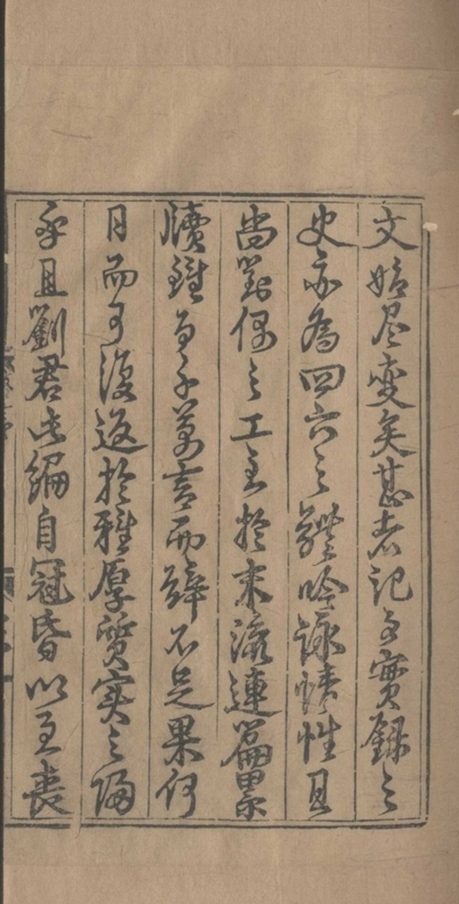 文始尽變矣甚者記事實録之
史亦為四六之體吟詠情性且
尚對偶之工至於末流連篇累
牘雖多千萬言而辭不足果何
月而可復返於雅厚質實之歸
乎且劉君此編自冠昏以至喪